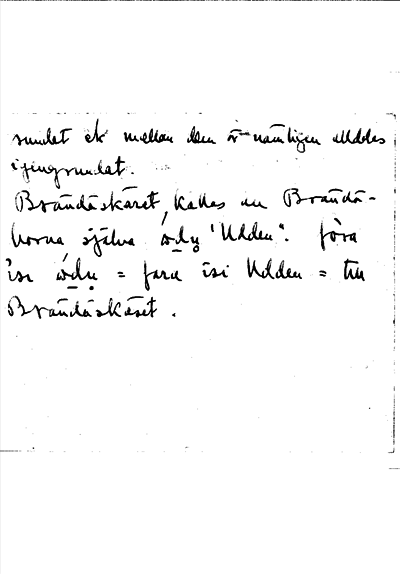 sundet etc mellan den ö nämligen Uddes
igengrundat.
Brändåskäret, kallas av Brändå-
borna själva "Udden". föra
isi = fara isi Udden = till
Brändåskäret.